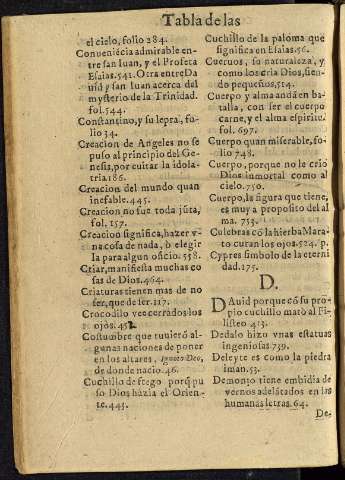 Tabla de las
el cielo, folio 284.
Conueniẽcia admirable en-
tre san Iuan, y el Profeta
Esaias.541. Otra entre Da
uid y san Iuan acerca del
mysterio de la Trinidad.
fol.544.
Constantino, y su lepra, fo-
lio 34.
Creacion de Angeles no se
puso al principio del Ge-
nesis, por euitar la idola-
tria 186.
Creacion del mundo quan
inefable.445.
Creacion no fue toda jũta,
fol. 157.
Creacion significa, hazer v-
na cosa de nada, ò elegir
la para algun oficio. 558.
Criar, manifiesta muchas co
sas de Dios.464.
Criaturas tienen mas de no
ser, que de ser.117.
Crocodilo vee cerrados los
ojos.45
Costumbre que tuuierõ al-
gunas naciones de poner
en los altares, Ignoto Deo,
de donde nacio.46.
Cuchillo de fuego porq̃ pu
so Dios hazia el Orien-
te.445.
Cuchillo de la paloma que
significa en Esaias.56.
Cueruos, su naturaleza, y
como los cria Dios, sien-
do pequeños, 514.
Cuerpo y alma andã en ba-
talla, con ser el cuerpo
carne, y el alma espiritu.
fol. 697.
Cuerpo quan miserable, fo-
lio 748.
Cuerpo, porque no le criò
Dios inmortal como al
cielo.750.
Cuerpo, la figura que tiene,
es muy a proposito del al
ma. 753.
Culebras cõ la hierba Mara-
to curan los ojos.524. p.
Cypres simbolo de la eterni
dad.175.
D.
DAuid porque cõ su pro-
pio cuchillo matò al Fi-
listeo 413.
Dedalo hizo vnas estatuas
ingeniosas 739.
Deleyte es como la piedra
iman.53.
Demonio tiene embidia de
vernos adelãtados en las
humanas letras.64.
De-